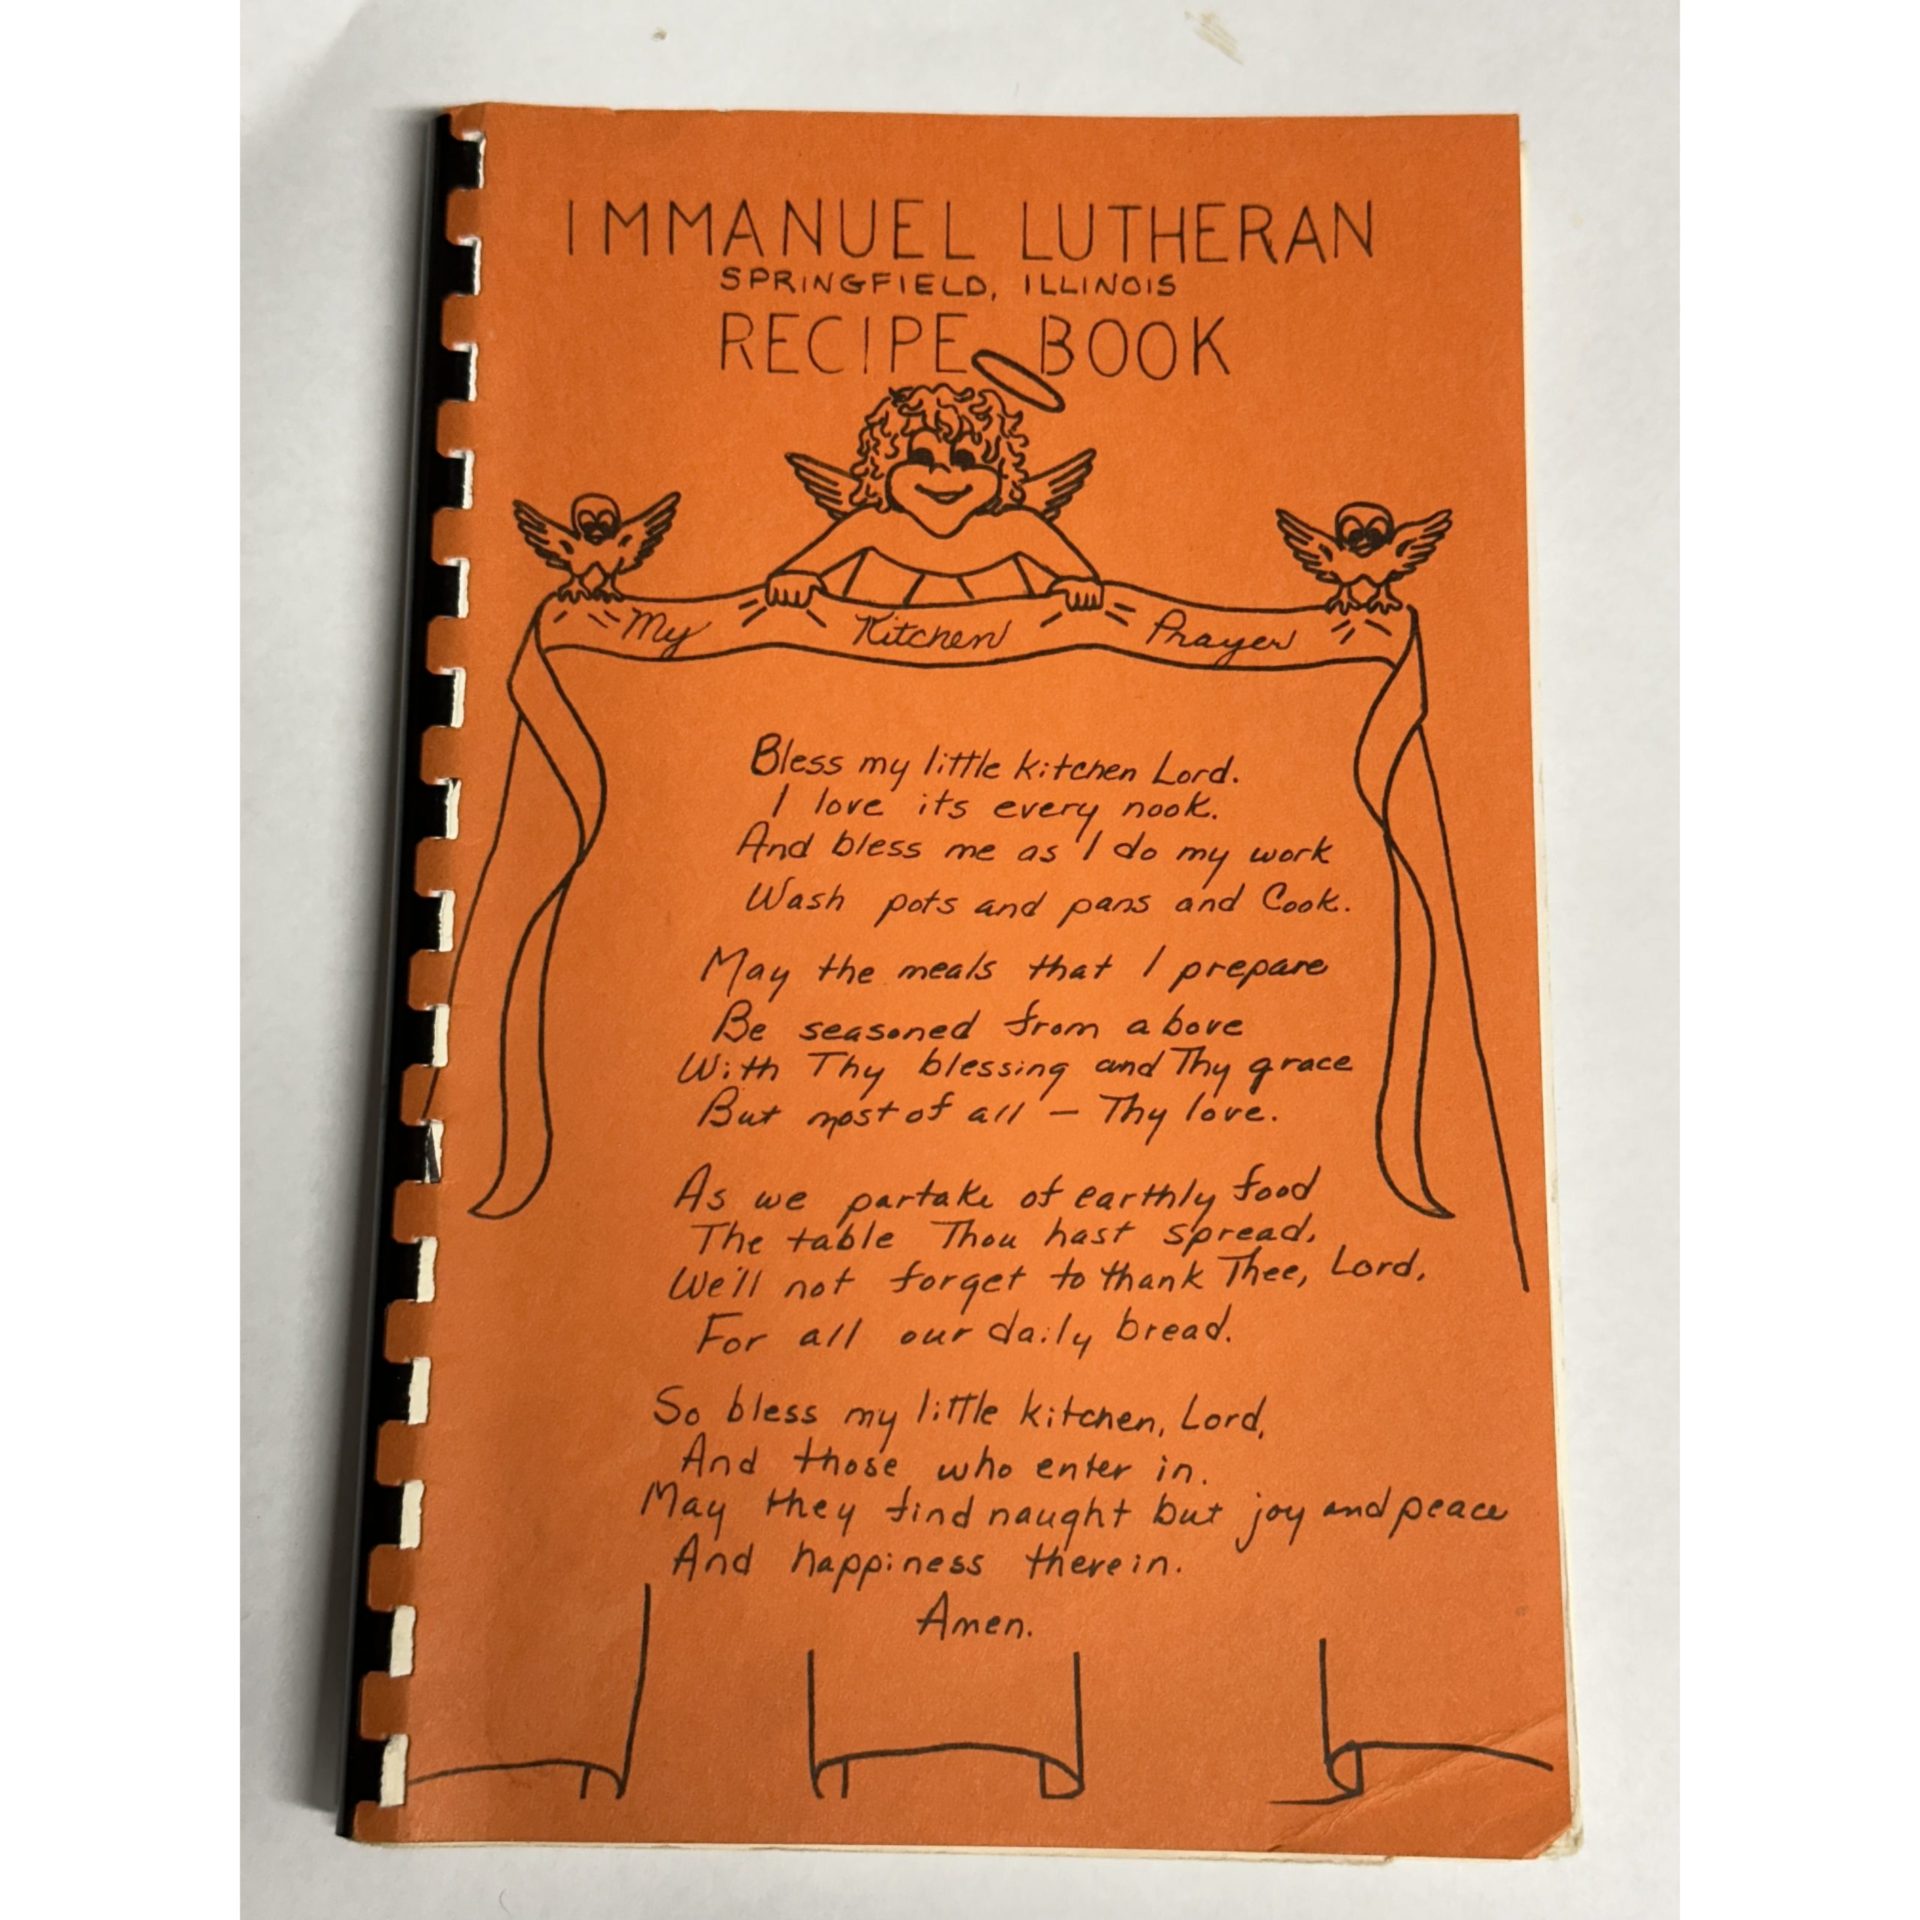 IMMANUEL LUTHERAN
SPRINGFIELD, ILLINOIS
RECIPE BOOK
My Kitchen Prayer
Bless my little kitchen Lord.
I love its every nook.
And bless me as I do my work
Wash pots and pans and Cook.
May the meals that I prepare
Be seasoned from above
With Thy blessing and Thy grace
But most of all — Thy love.
As we partake of earthly food
The table Thou hast spread,
We'll not forget to thank Thee, Lord,
For all our daily bread.
So bless my little kitchen, Lord,
And those who enter in.
May they find naught but joy and peace
And happiness therein.
Amen.